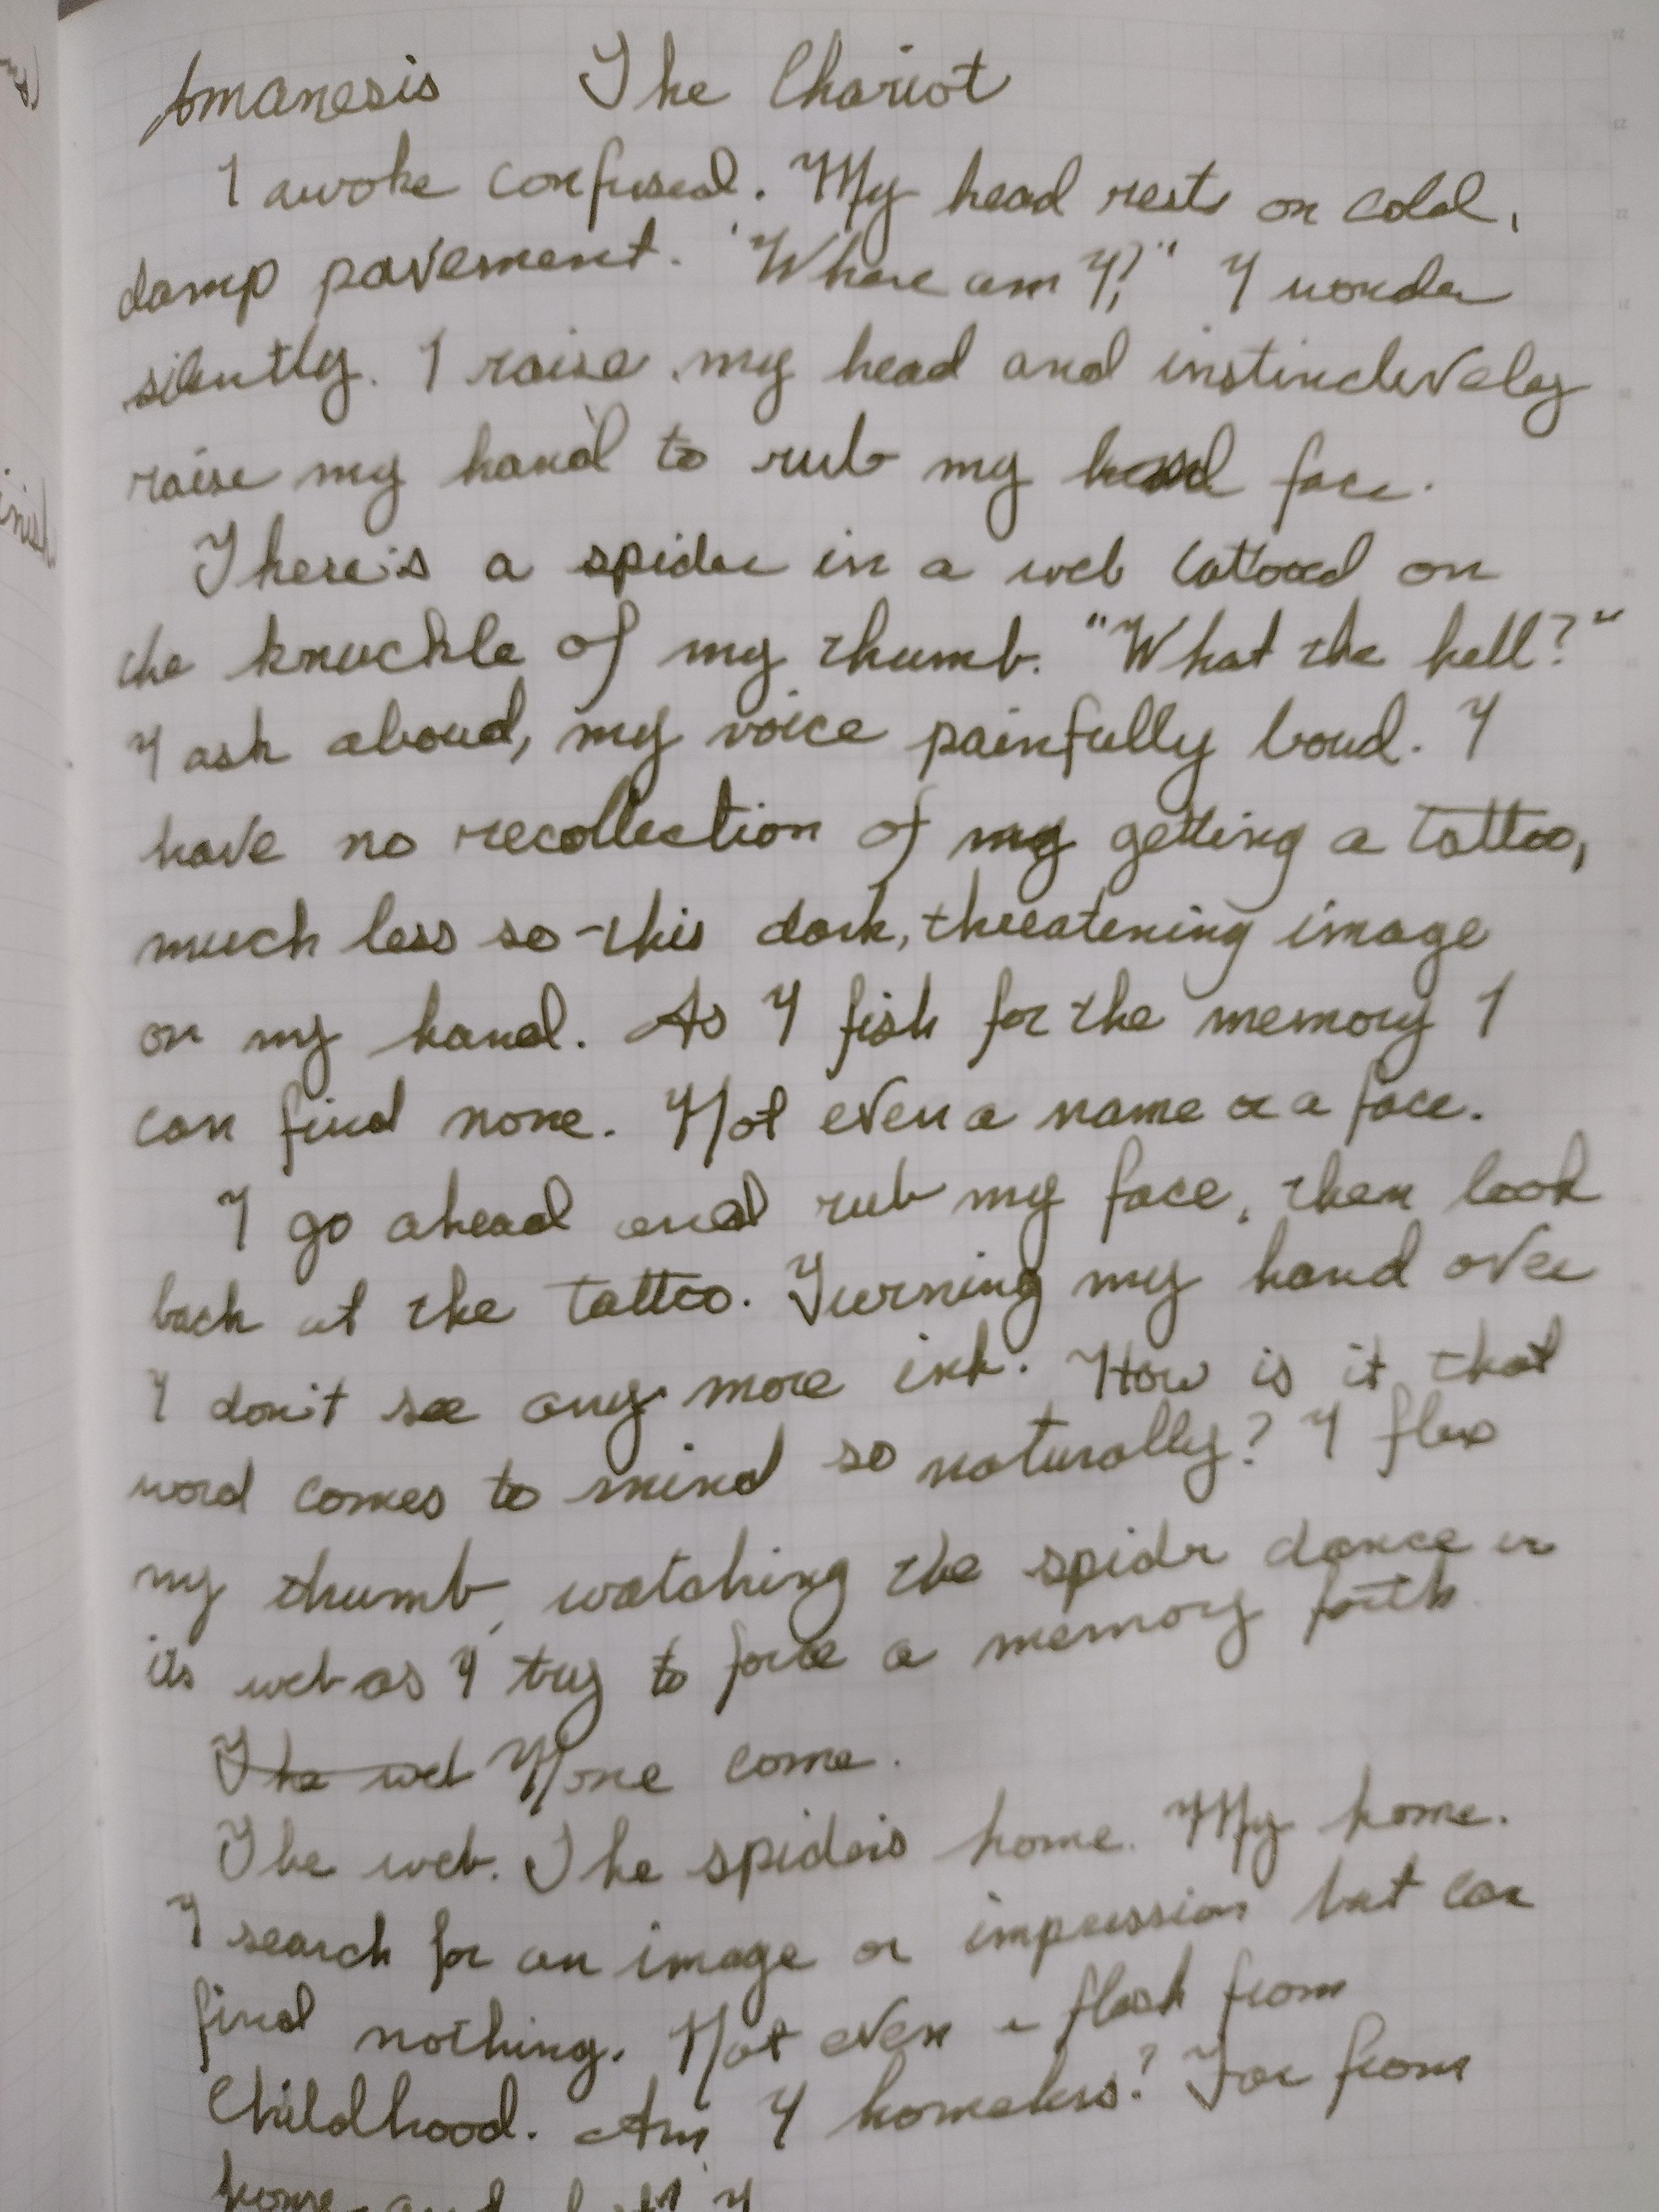 Amanesis The Chariot
I awoke confused. My head rests on cold,
damp pavement. "Where am I?" I wonder
silently. I raise my head and instinctively
raise my hand to rub my head face.
There's a spider in a web tattooed on
the knuckle of my thumb. "What the hell?"
I ask aloud, my voice painfully loud. I
have no recollection of my getting a tattoo,
much less so this dark, threatening image
on my hand. As I fish for the memory I
can find none. Not even a name or a face.
I go ahead and rub my face, then look
back at the tattoo. Turning my hand over
I don't see any more ink. How is it that
word comes to mind so naturally? I flex
my thumb, watching the spider dance in
its web as I try to force a memory forth
The web None come.
The web. The spider's home. My home.
I search for an image or impression but can
find nothing. Not even a flash from
Childhood. Am I homeless? Far from
home and